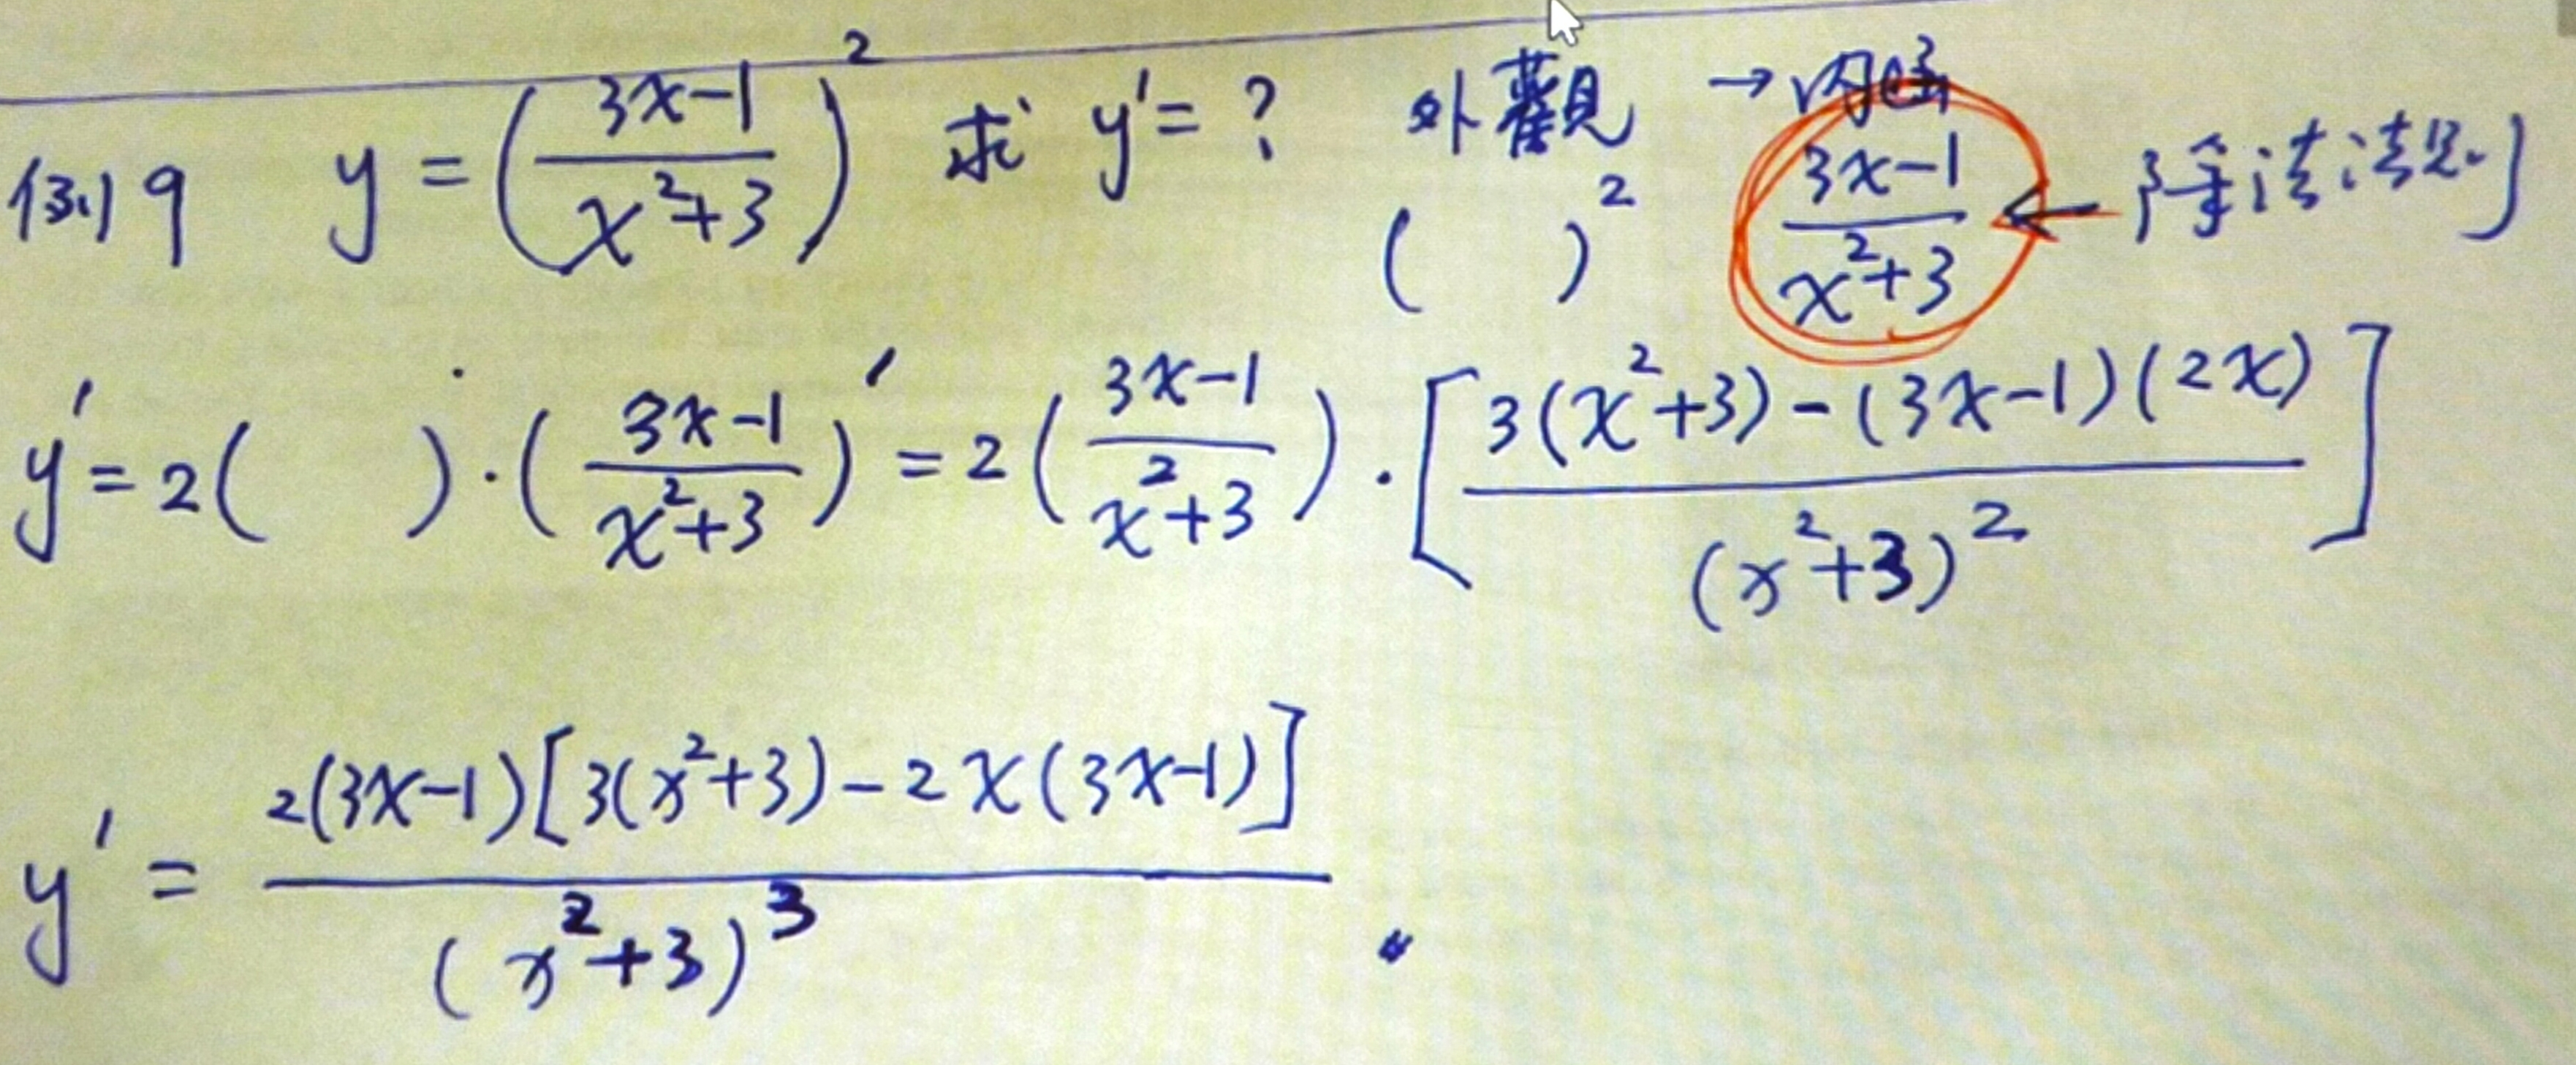 例9 y = ((3x-1)/(x²+3))² 求 y' = ? 外觀 → 内涵
( )² (3x-1)/(x²+3) ← 除法法則
y' = 2( )·((3x-1)/(x²+3))' = 2((3x-1)/(x²+3))·[(3(x²+3)-(3x-1)(2x))/(x²+3)²]
y' = 2(3x-1)[3(x²+3)-2x(3x-1)]/(x²+3)³